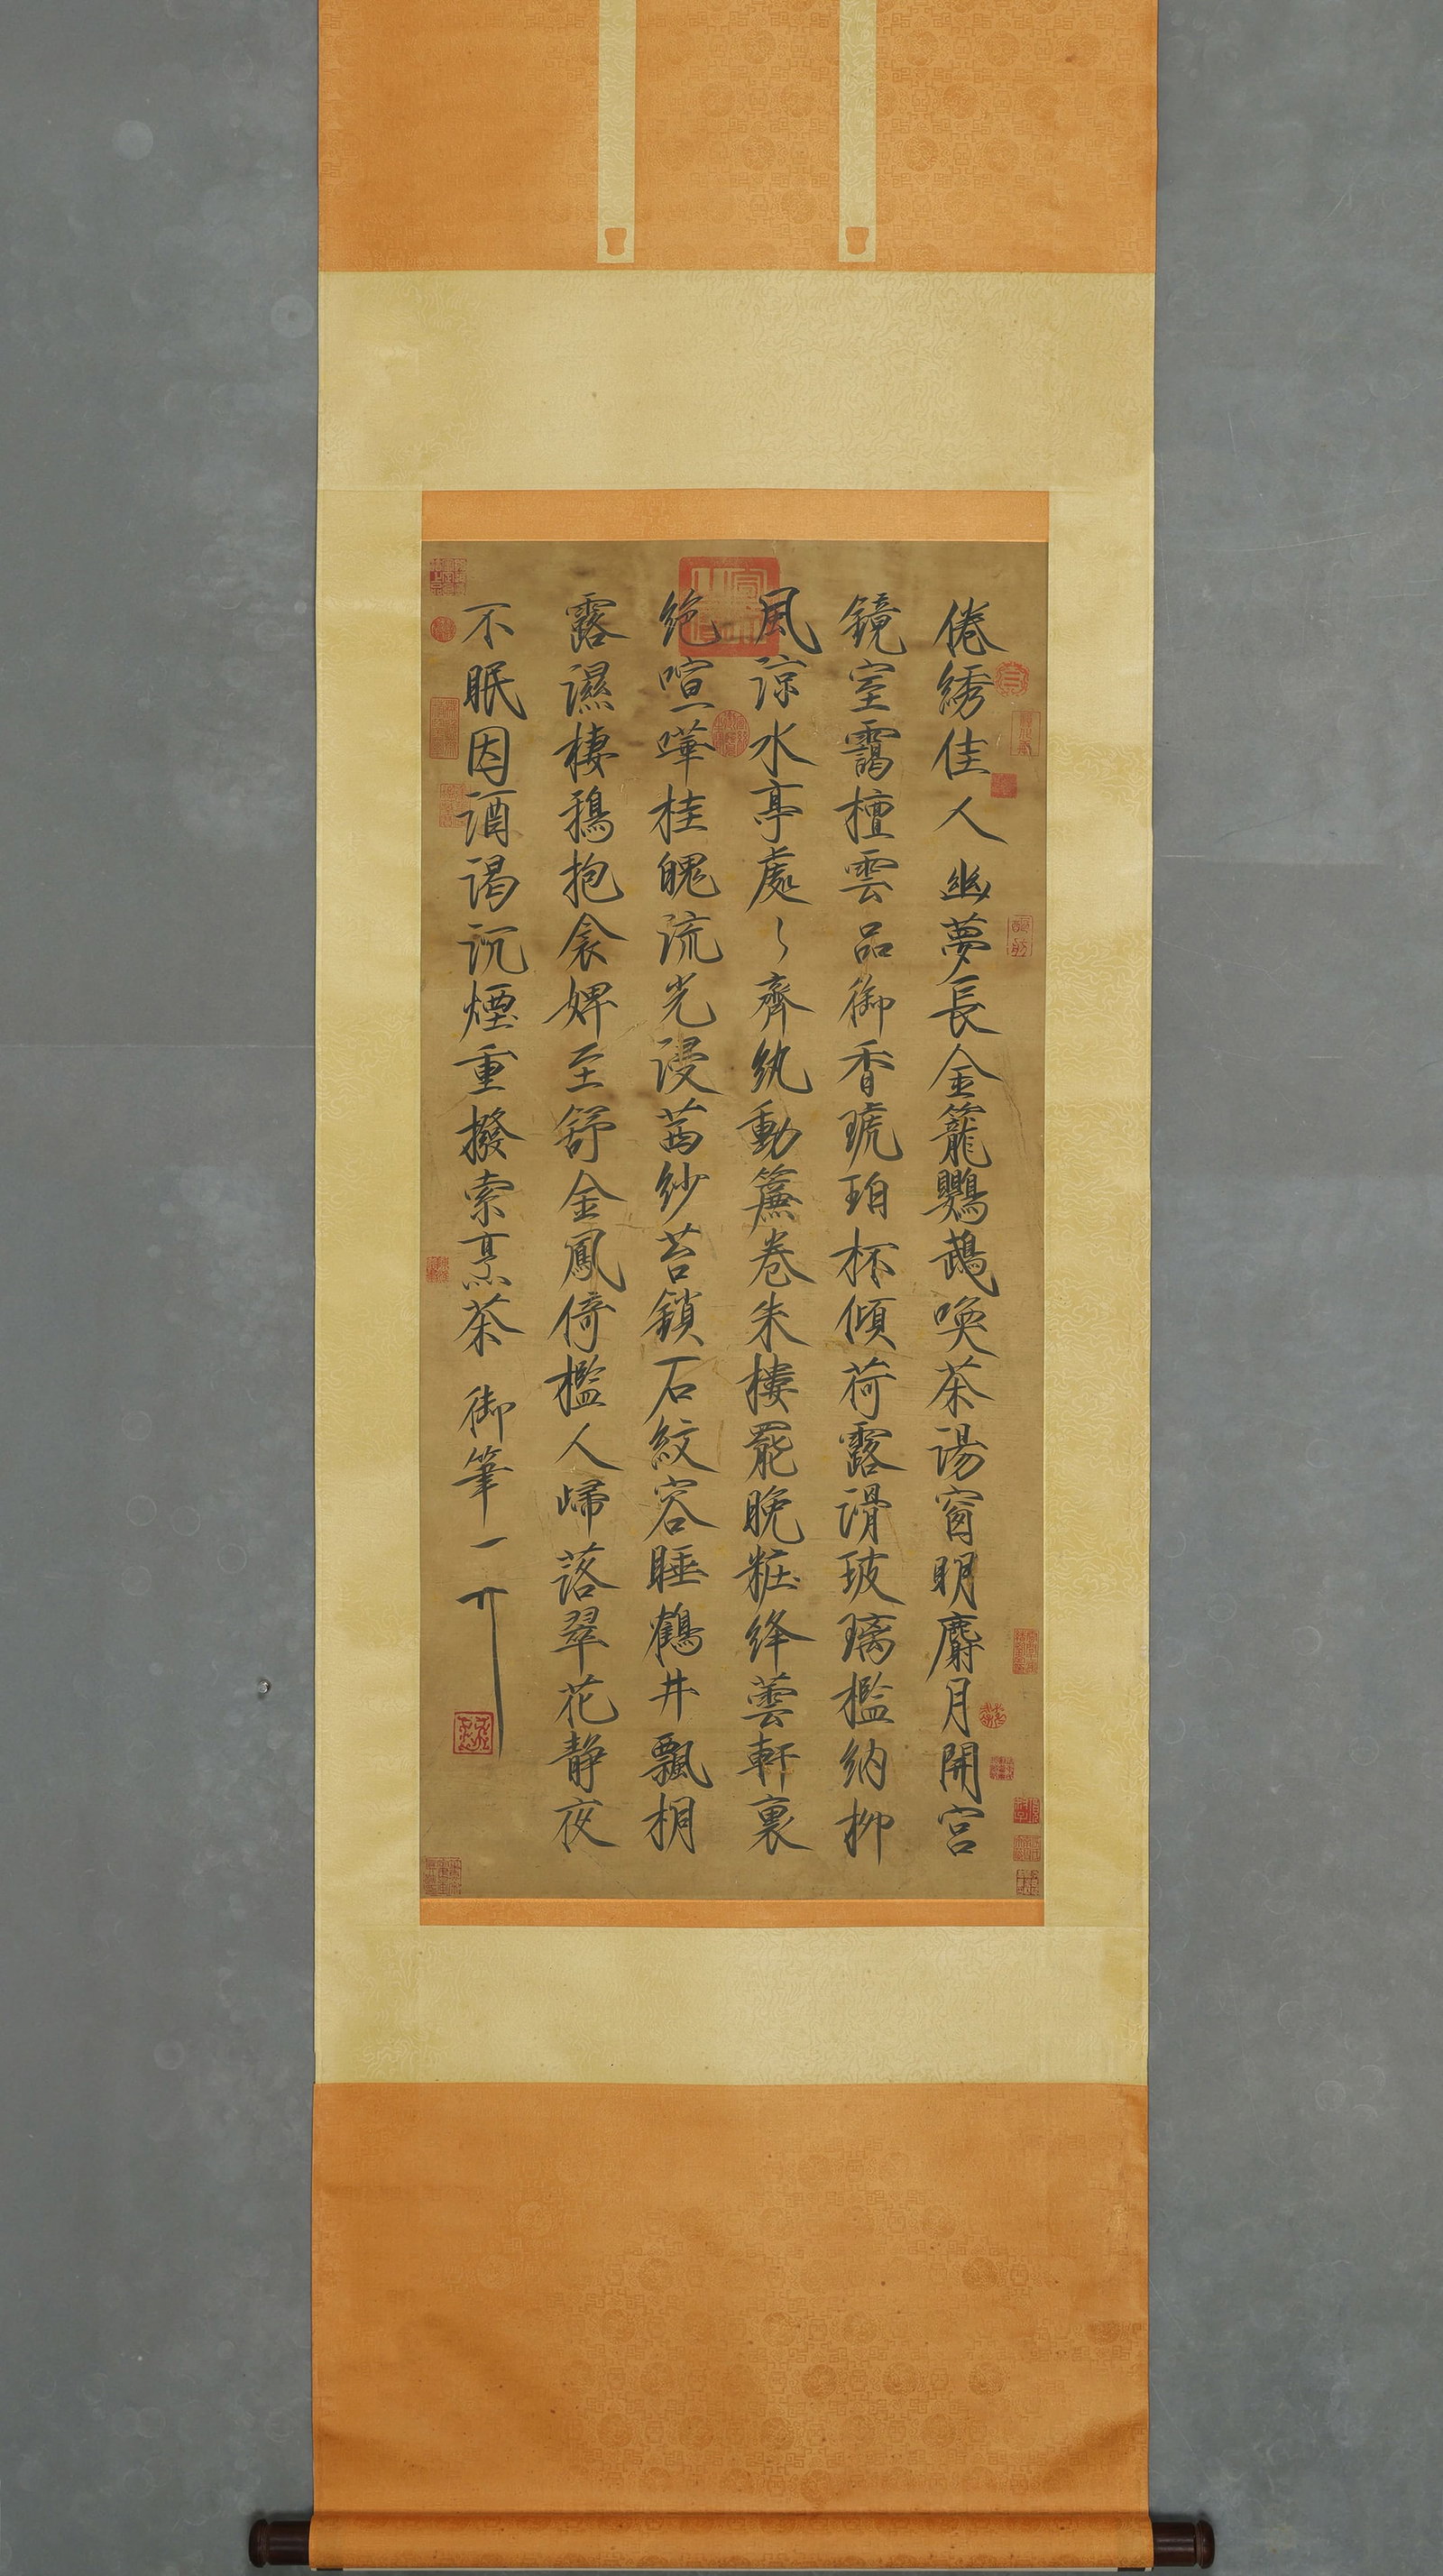 倦綉佳人幽夢長金籠鸚鵡喚茶湯窗明麝月開宮
鏡室靄檀雲品御香琥珀杯傾荷露滑玻璃檻納柳
風涼水亭處〻齊紈動簾卷朱樓罷晚粧絳蕓軒裏
絶喧嘩桂魄流光浸茜紗苔鎖石紋容睡鶴井飄桐
露濕棲鴉抱衾婢至舒金鳳倚檻人歸落翠花静夜
不眠因酒渴沉煙重撥索烹茶 御筆